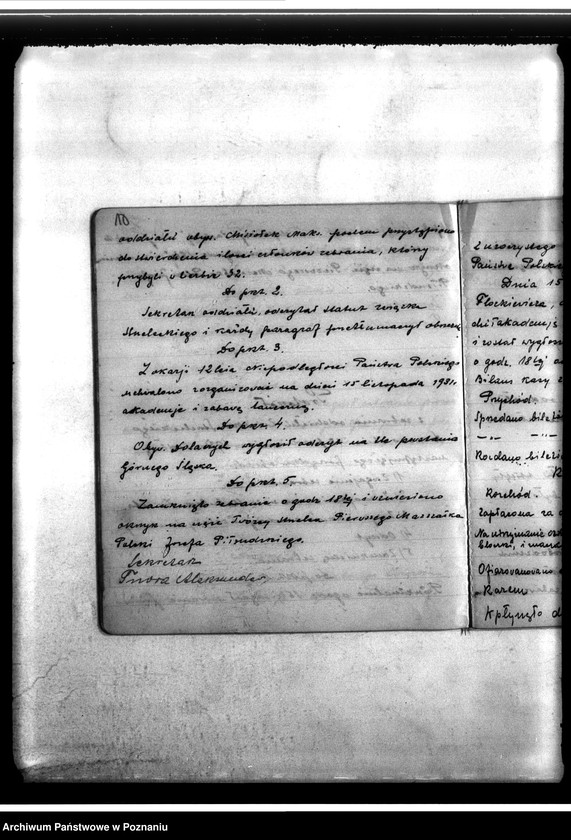 10
oddziału obyw. Misiołek Maks. poczem przystąpiono
do stwierdzenia ilości członków zebrania, który
przybyli w liczbie 32.
Do pkt. 2.
Sekretarz oddziału, odczytał statut związku
Strzeleckiego i każdy paragraf przetłumaczył obszernie
Do pkt. 3.
Z okazji 12 lecia niepodległości Państwa Polskiego
uchwalono zorganizować na dzień 15 listopada 1931r.
akademję i zabawę taneczną.
Do pkt. 4.
Obyw. wygłosił odczyt na tle powstania
Górnego Śląska.
Do pkt. 5.
Zamknięto zebranie o godz. 18tej i wzniesiono
okrzyk na cześć Twórcy Strzelca Pierwszego Marszałka
Polski Józefa Piłsudskiego.
Sekretarz
Aleksander
Z uroczystego
Państwa Polsk
Dnia 15
dział akademj
i został wygłosz
o godz. 18tej
Bilans kasy
Przychód.
Sprzedano bilet
Rozdano bilet
Rozchód.
zapłacono za
Na utrzymanie
Ofiarowano
Razem
Wpłynęło d
Archiwum Państwowe w Poznaniu